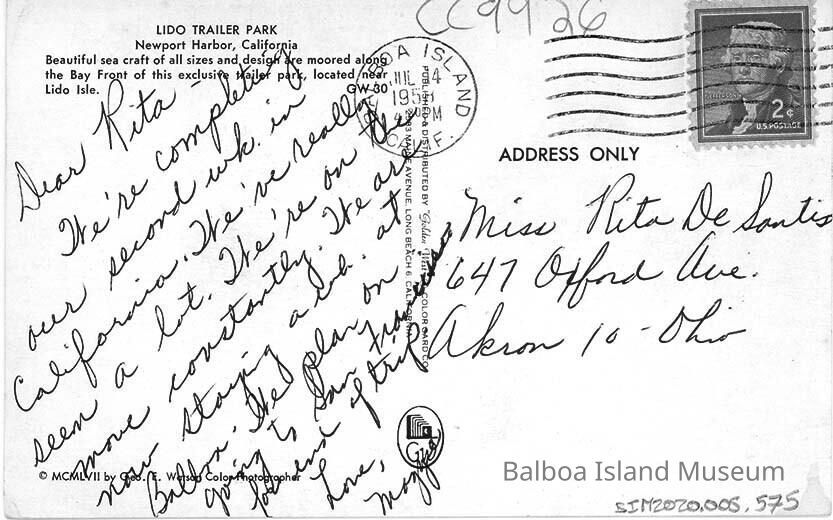 CC9926
LIDO TRAILER PARK
Newport Harbor, California
Beautiful sea craft of all sizes and design are moored along
the Bay Front of this exclusive trailer park, located near
Lido Isle. GW-30
BALBOA ISLAND
JUL 14
195
PM
CALIF.
2¢
U.S. POSTAGE
ADDRESS ONLY
Dear Rita -
We're completing
our second wk. in
California. We've really
seen a lot. We're on the
move constantly. We are
now staying a wk. at
Balboa. We plan on
going to San Francisco
for end of trip
Love,
Miss Rita De Santis
647 Offord Ave.
Akron 10 - Ohio
PUBLISHED & DISTRIBUTED BY Golden West COLOR CARD CO.
MAINE AVENUE, LONG BEACH 6, CALIFORNIA
© MCMLVII by Geo. E. Watson Color Photographer
Balboa Island Museum
SIM2020.005.575